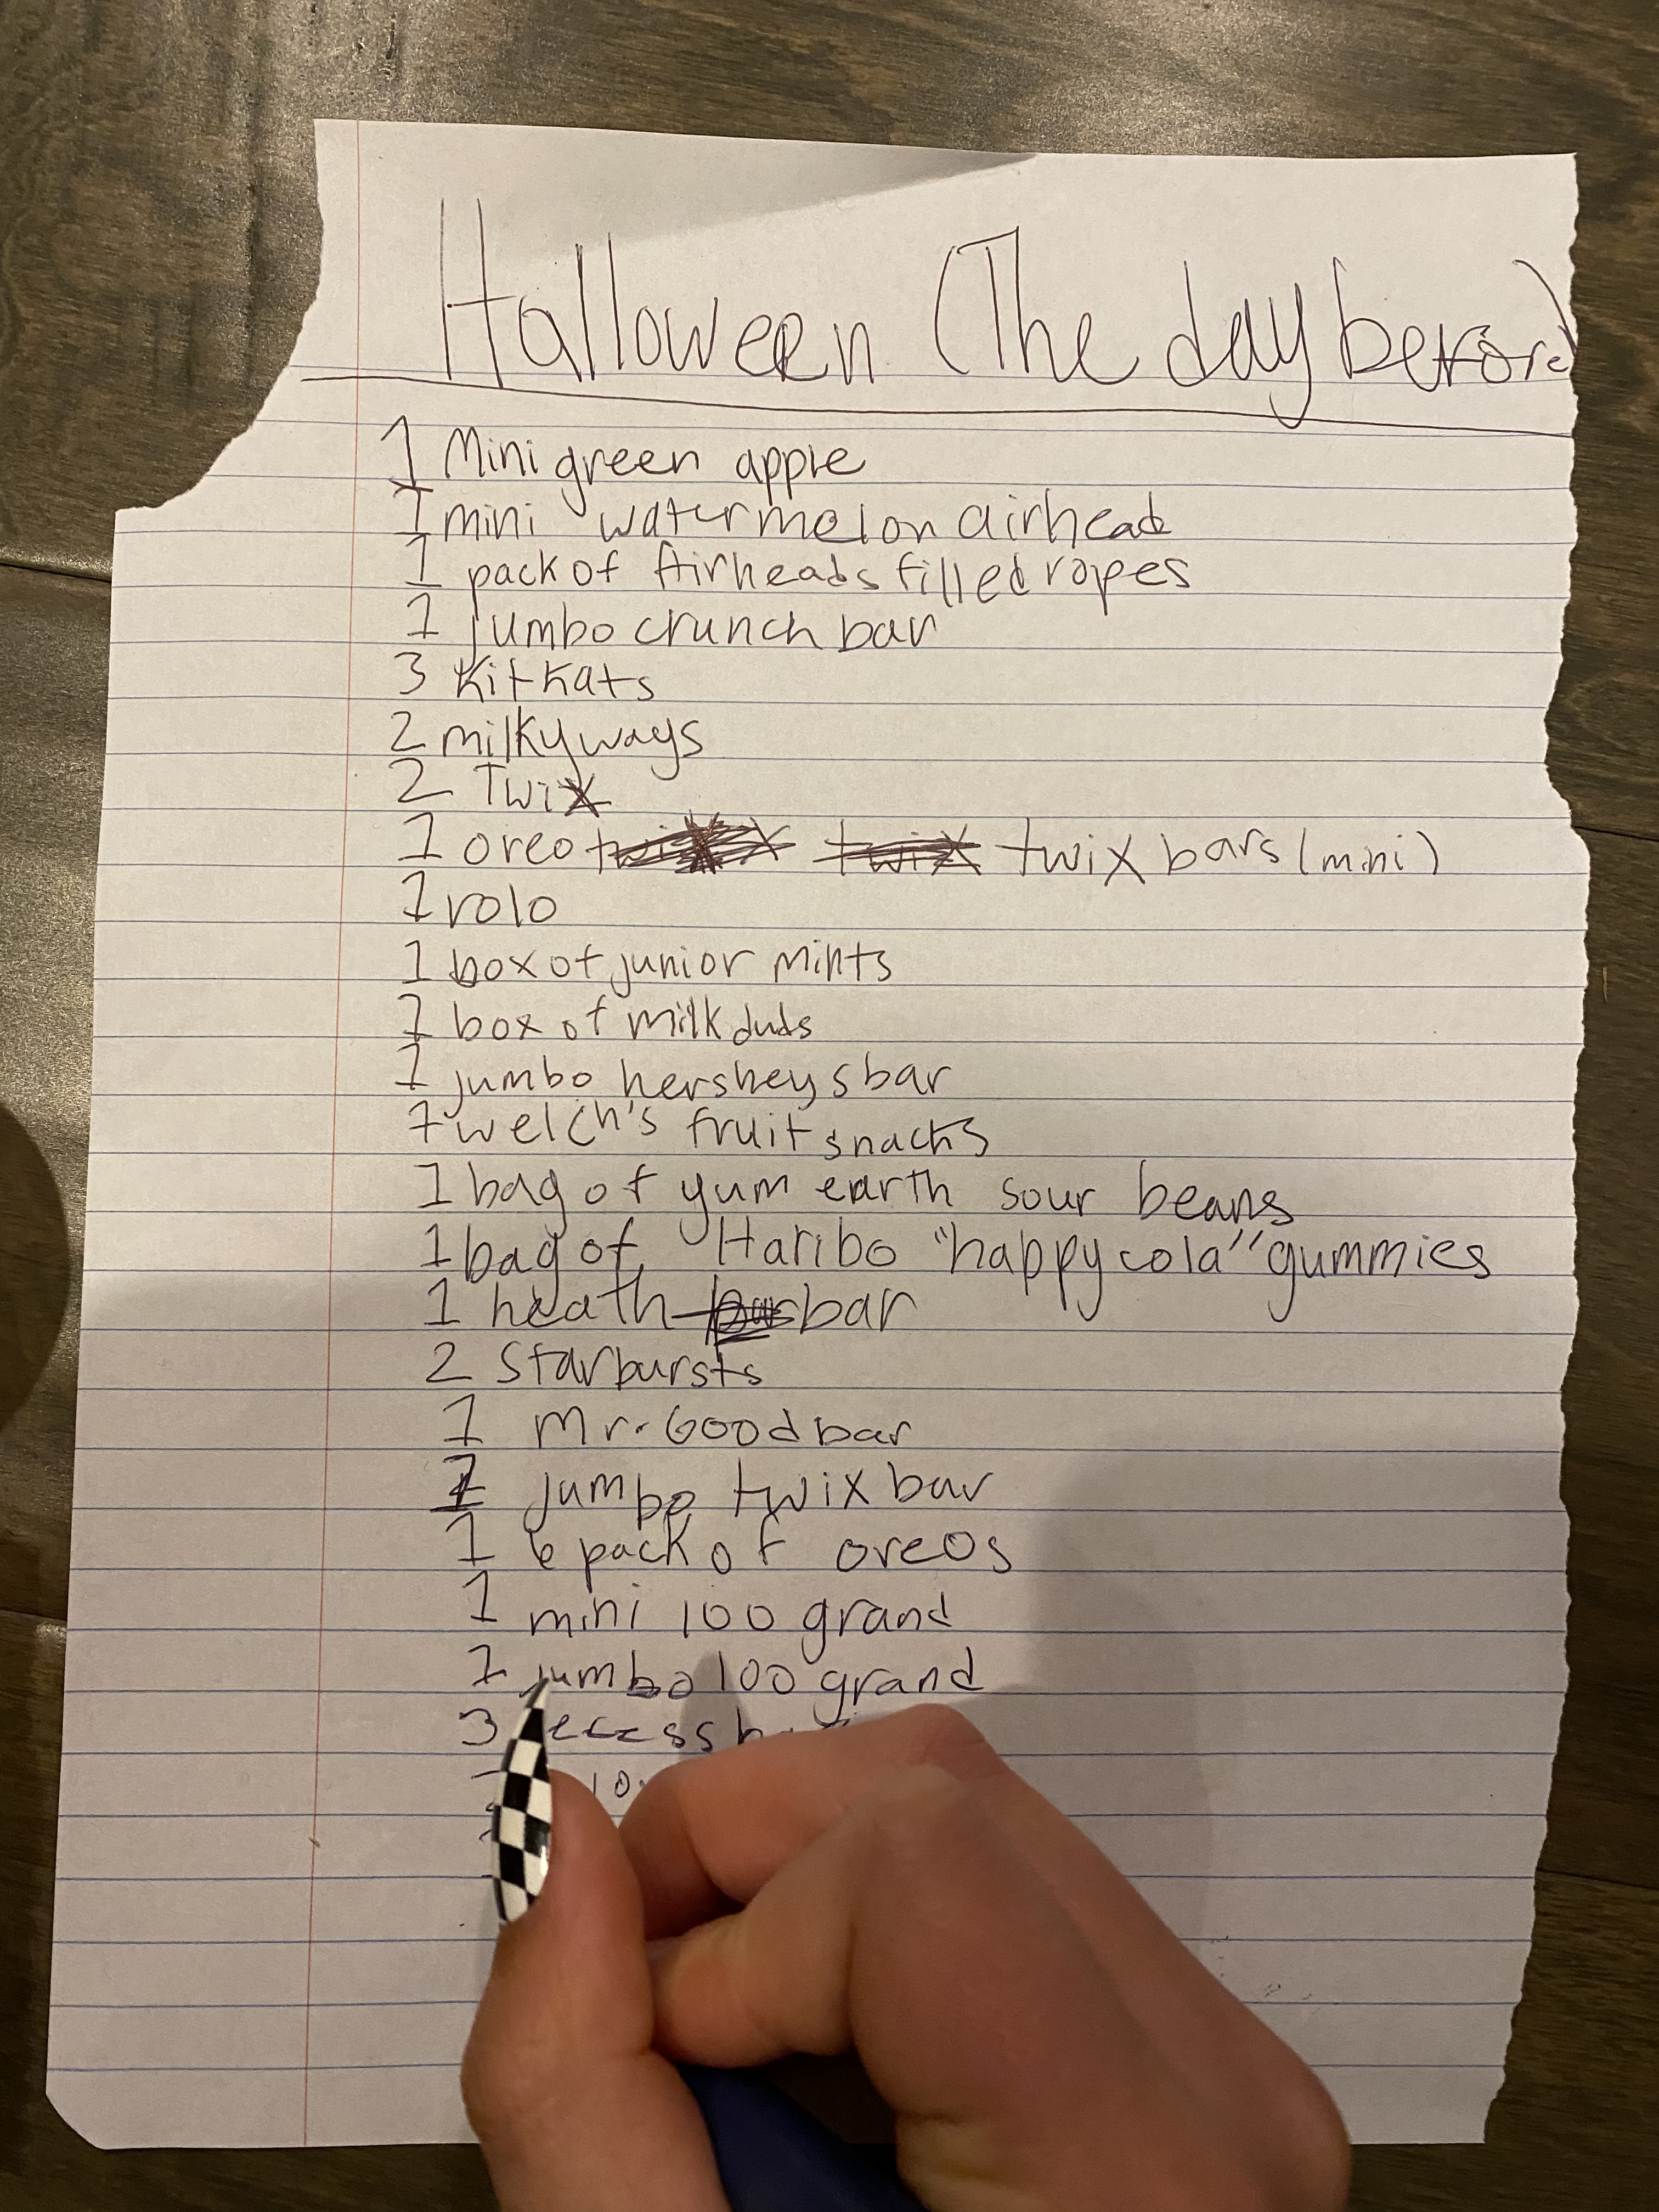 Halloween (The day before)
1 Mini green apple
1 mini watermelon airhead
1 pack of Airheads filled ropes
1 jumbo crunch bar
3 KitKats
2 milkyways
2 Twix
1 oreo twix twix twix bars (mini)
1 rolo
1 box of junior mints
1 box of milkduds
1 jumbo hersheys bar
7 welch's fruit snacks
1 bag of yum earth sour beans
1 bag of Haribo "happy cola" gummies
1 heath bar
2 Starbursts
1 Mr. Goodbar
1 jumbo twix bar
1 6 pack of oreos
1 mini 100 grand
1 jumbo 100 grand
3